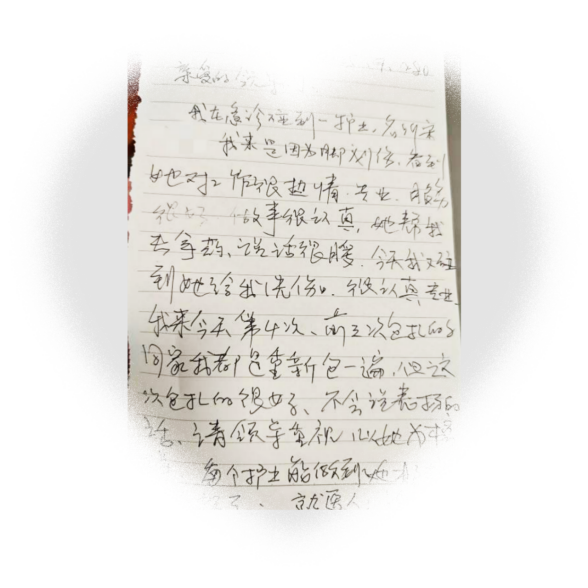 亲爱的
我在急诊碰到一护士,名叫宋
我来是因为脚划伤,看到
她对工作很热情.专业.服务
很好 做事很认真,她帮我
去拿药,说话很暖.今天我又碰
到她给我洗伤口.很认真专业,
我来今天第4次、前三次包扎的
回家我都是重新包一遍,但这
次包扎的很好、不会说表扬的
话、请领导重视 以她为
每个护士能做到她
就医人